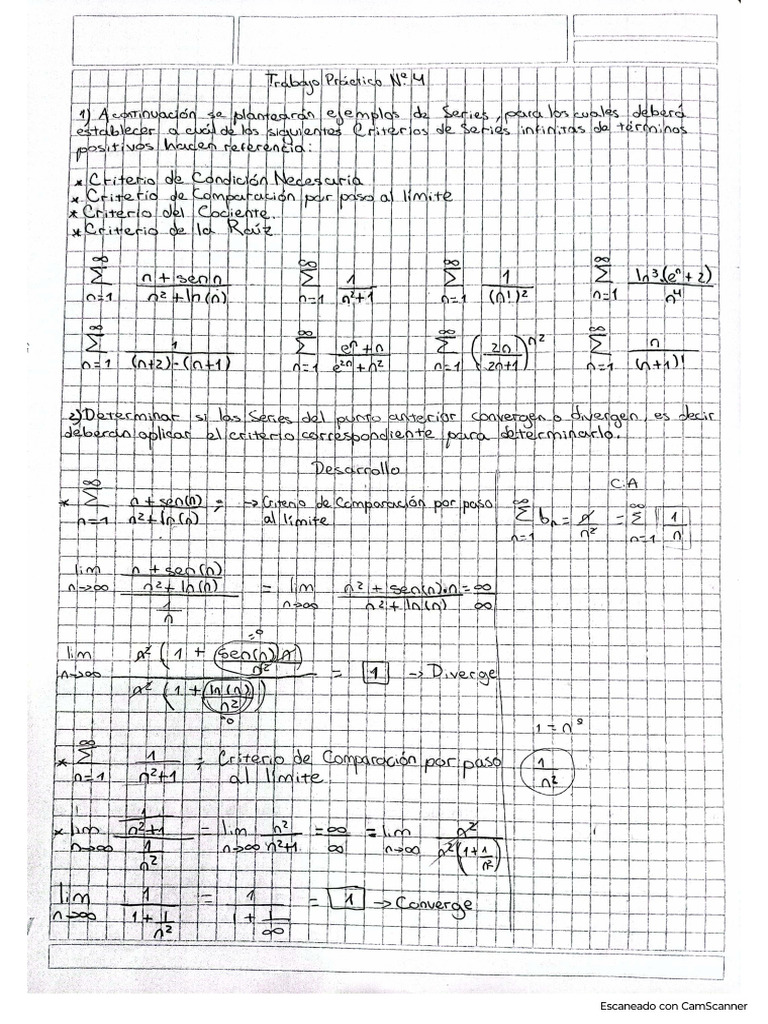 Trabajo Práctico N° 4
1) A continuación se plantearán ejemplos de Series, para los cuales deberá
establecer a cuál de los siguientes Criterios de Series infinitas de términos
positivos hacen referencia:
* Criterio de Condición Necesaria
* Criterio de Comparación por paso al límite
* Criterio del Cociente.
* Criterio de la Raíz
∞ Σ n=1 (n + sen n)/(n² + ln(n))   ∞ Σ n=1 1/(n²+1)   ∞ Σ n=1 1/(n!)²   ∞ Σ n=1 ln³·(eⁿ+2)/n⁴
∞ Σ n=1 1/((n+2)-(n+1))   ∞ Σ n=1 (eⁿ+n)/(e²ⁿ+n²)   ∞ Σ n=1 (2n/(2n+1))^n²   ∞ Σ n=1 n/(n+1)!
2) Determinar si las Series del punto anterior convergen o divergen, es decir
deberán aplicar el criterio correspondiente para determinarlo.
Desarrollo
C.A
* ∞ Σ n=1 (n + sen(n))/(n² + ln(n)) ; → Criterio de Comparación por paso
al límite
∞ Σ n=1 bn = n/n² = ∞ Σ n=1 1/n
lim n→∞ ((n + sen(n))/(n² + ln(n)))/(1/n) = lim n→∞ (n² + sen(n)·n)/(n² + ln(n)) = ∞/∞
lim n→∞ n²(1 + sen(n)n/n²)/n²(1 + ln(n)/n²) = 1 → Diverge
=0
=0
1 = n⁰
* ∞ Σ n=1 1/(n²+1) ; Criterio de Comparación por paso
al límite
1/n²
* lim n→∞ (1/(n²+1))/(1/n²) = lim n→∞ n²/(n²+1) = ∞/∞ = lim n→∞ n²/n²(1+1/n²)
lim n→∞ 1/(1+1/n²) = 1/(1+1/∞) = 1 → Converge
Escaneado con CamScanner